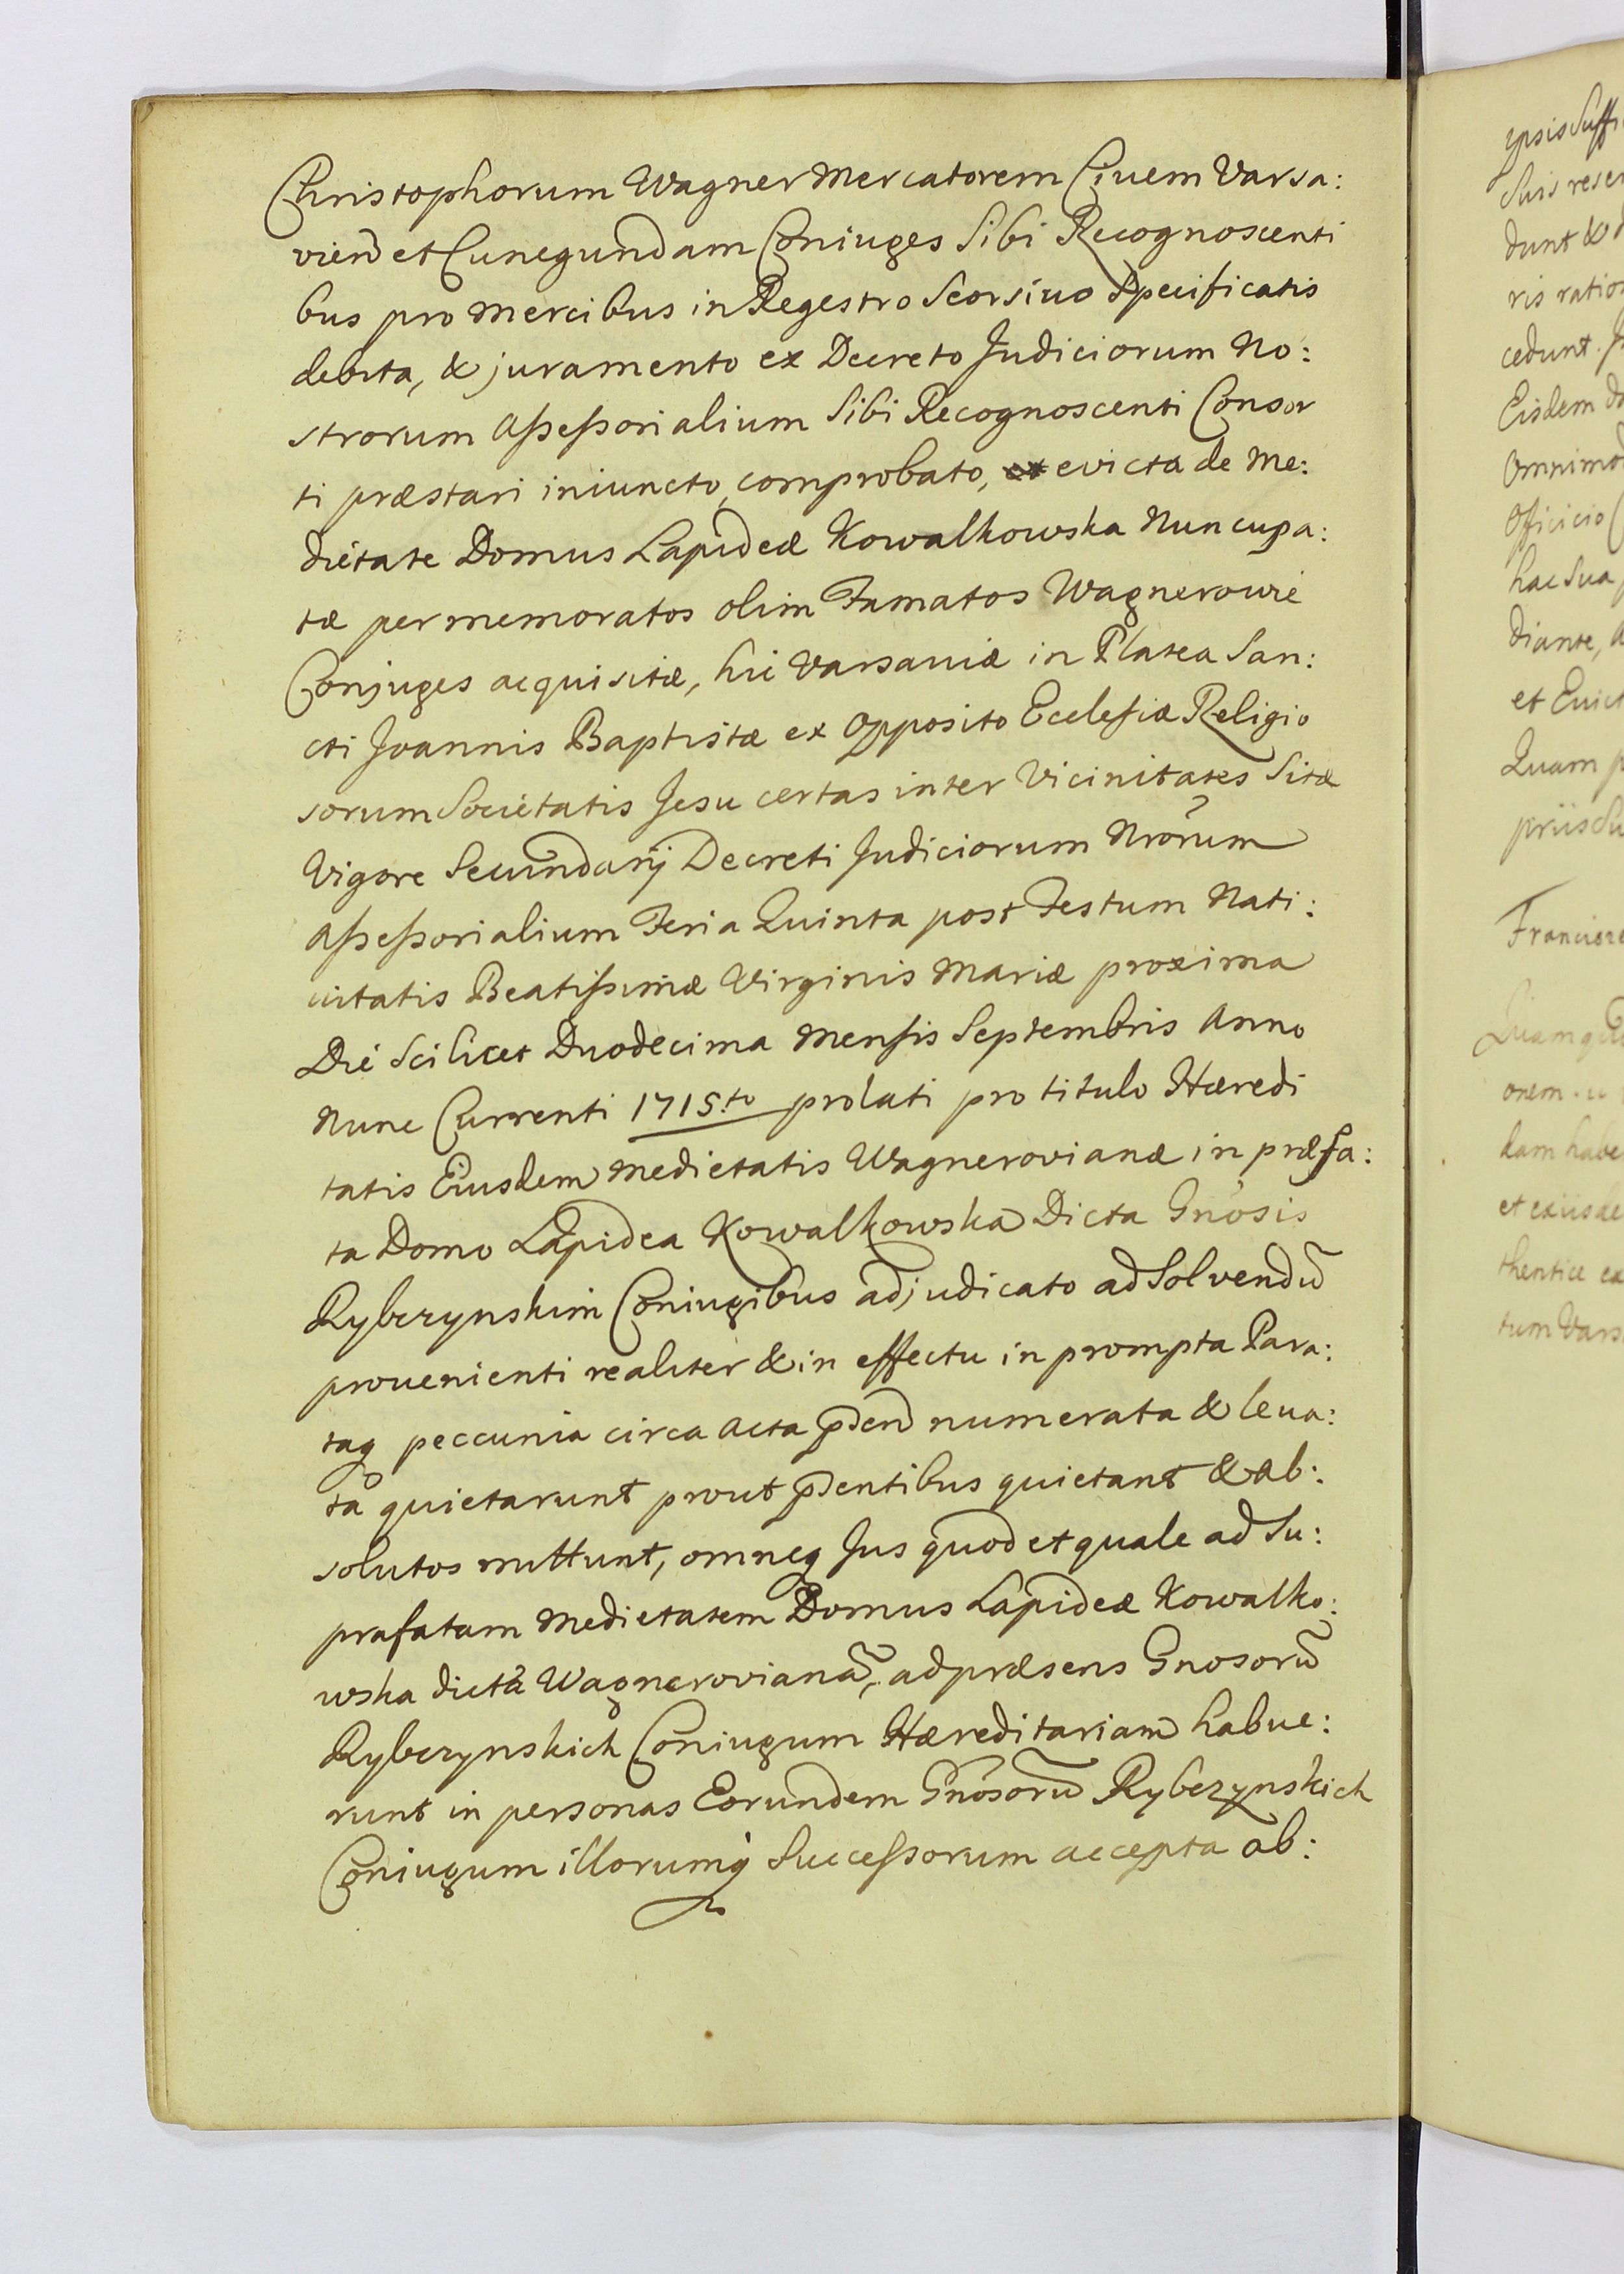 Christophorum Wagner Mercatorem Civem Varsa:
vien̄ et Cunegundam Coniuges Sibi Recognoscenti
bus pro Mercibus in Regestro Seorsivo Specificatis
debita, & juramento ex Decreto Judiciorum No:
strorum Assessorialium Sibi Recognoscenti Consor
ti præstari iniuncto, comprobato, evicta de Me:
dietate Domus Lapideæ Kowalkowska Nuncupa:
tæ per memoratos olim Famatos Wagnerowie
Conjuges acquisitæ, hic Varsaviæ in Platea San:
cti Joannis Baptistæ ex Opposito Ecclesiæ Religio
sorum Societatis Jesu certas inter Vicinitates Sitæ
Vigore Secundarij Decreti Judiciorum Nrōrum
Assessorialium Feria Quinta post Festum Nati:
vitatis Beatissimæ Virginis Mariæ proxima
Die Scilicet Duodecima Mensis Septembris Anno
Nunc Currenti 1715.to prolati pro titulo Hæredi
tatis Eiusdem Medietatis Wagnerovianæ in præfa:
ta Domo Lapidea Kowalkowska Dicta Gnōsis
Rybczynskim Coniugibus adjudicato ad Solvendū
provenienti realiter & in effectu in prompta Para:
taq peccunia circa Acta p̄sen̄ numerata & leva:
ta quietarunt prout p̄sentibus quietant & ab:
solutos mittunt, omneq Jus quod et quale ad Su:
prafatam Medietatem Domus Lapideæ Kowalko:
wska dictā Wagnerovianā, ad præsens Gnosorū
Rybczynskich Coniugum Hæreditariam habue:
runt in personas Eorundem Gnōsorū Rybczynskich
Coniugum illorumq Successorum accepta ab:
ipsis
Suis
dunt &
ris
cedunt.
Eisdem
Officio
hac Sua
diante,
et
Quam
dam
et
tum